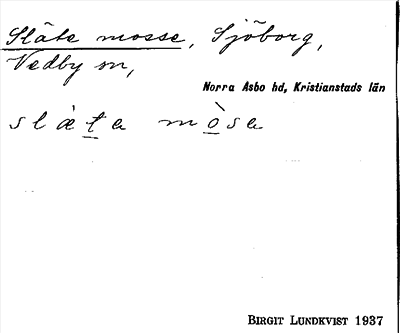 Släte mosse, Sjöborg,
Vedby sn,
Norra Åsbo hd, Kristianstads län
slæ̀ta mòsa
BIRGIT LUNDKVIST 1937